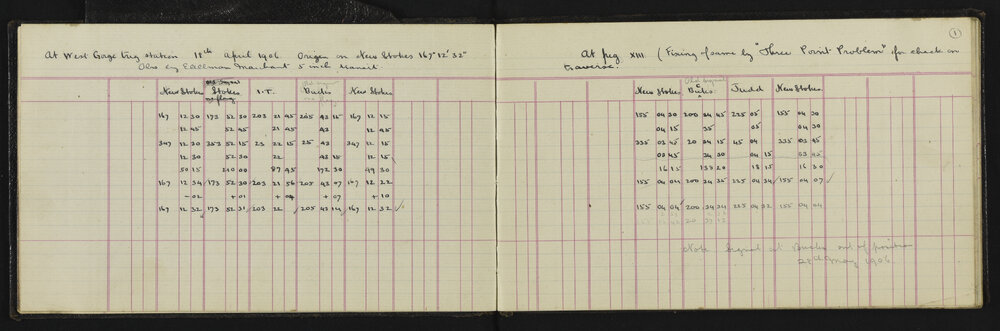 At West Gorge trig station 18th April 1906 Origin on New Stokes 167° 12' 32"
Obs by 5 inch transit.
New Stokes Stokes I.T. New Stokes
167 12 30 173 52 30 203 21 45 205 43 15 167 12 15
12 45 52 45 21 45 43 12 45
347 12 30 353 52 15 23 22 15 25 43 347 12 15
12 30 52 30 22 43 15 12 15
50 15 210 00 87 45 172 30 49 30
167 12 34 173 52 30 203 21 56 205 43 07 167 12 22
- 02 + 01 + 04 + 07 + 10
167 12 32 173 52 31 203 22 205 43 14 167 12 32
1
At peg XIII (Fixing of same by "Three Point Problem" for check on
traverse.
Old Signal
New Stokes Judd New Stokes
155 04 30 200 24 45 225 05 155 04 30
04 15 35 05 04 30
335 03 45 20 04 15 45 04 335 03 45
03 45 34 30 04 15 03 45
16 15 18 15 16 30
155 04 04 200 34 35 225 04 34 155 04 07
155 04 04 200 34 34 225 04 32 155 04 04
Note Signal at out of position
28th May 1906